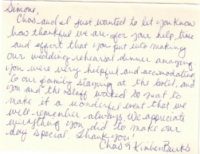 Simone,
Chas and I just wanted to let you know
how thankful we are for your help, time
and effort that you put into making
our wedding rehearsal dinner amazing
you were very helpful and accomodating
to our family staying at the hotel and
you and the staff worked so hard to
make it a wonderful event that we
will remember always. We appreciate
everything you did to make our
day special. Thank you!
Chas & Kimber